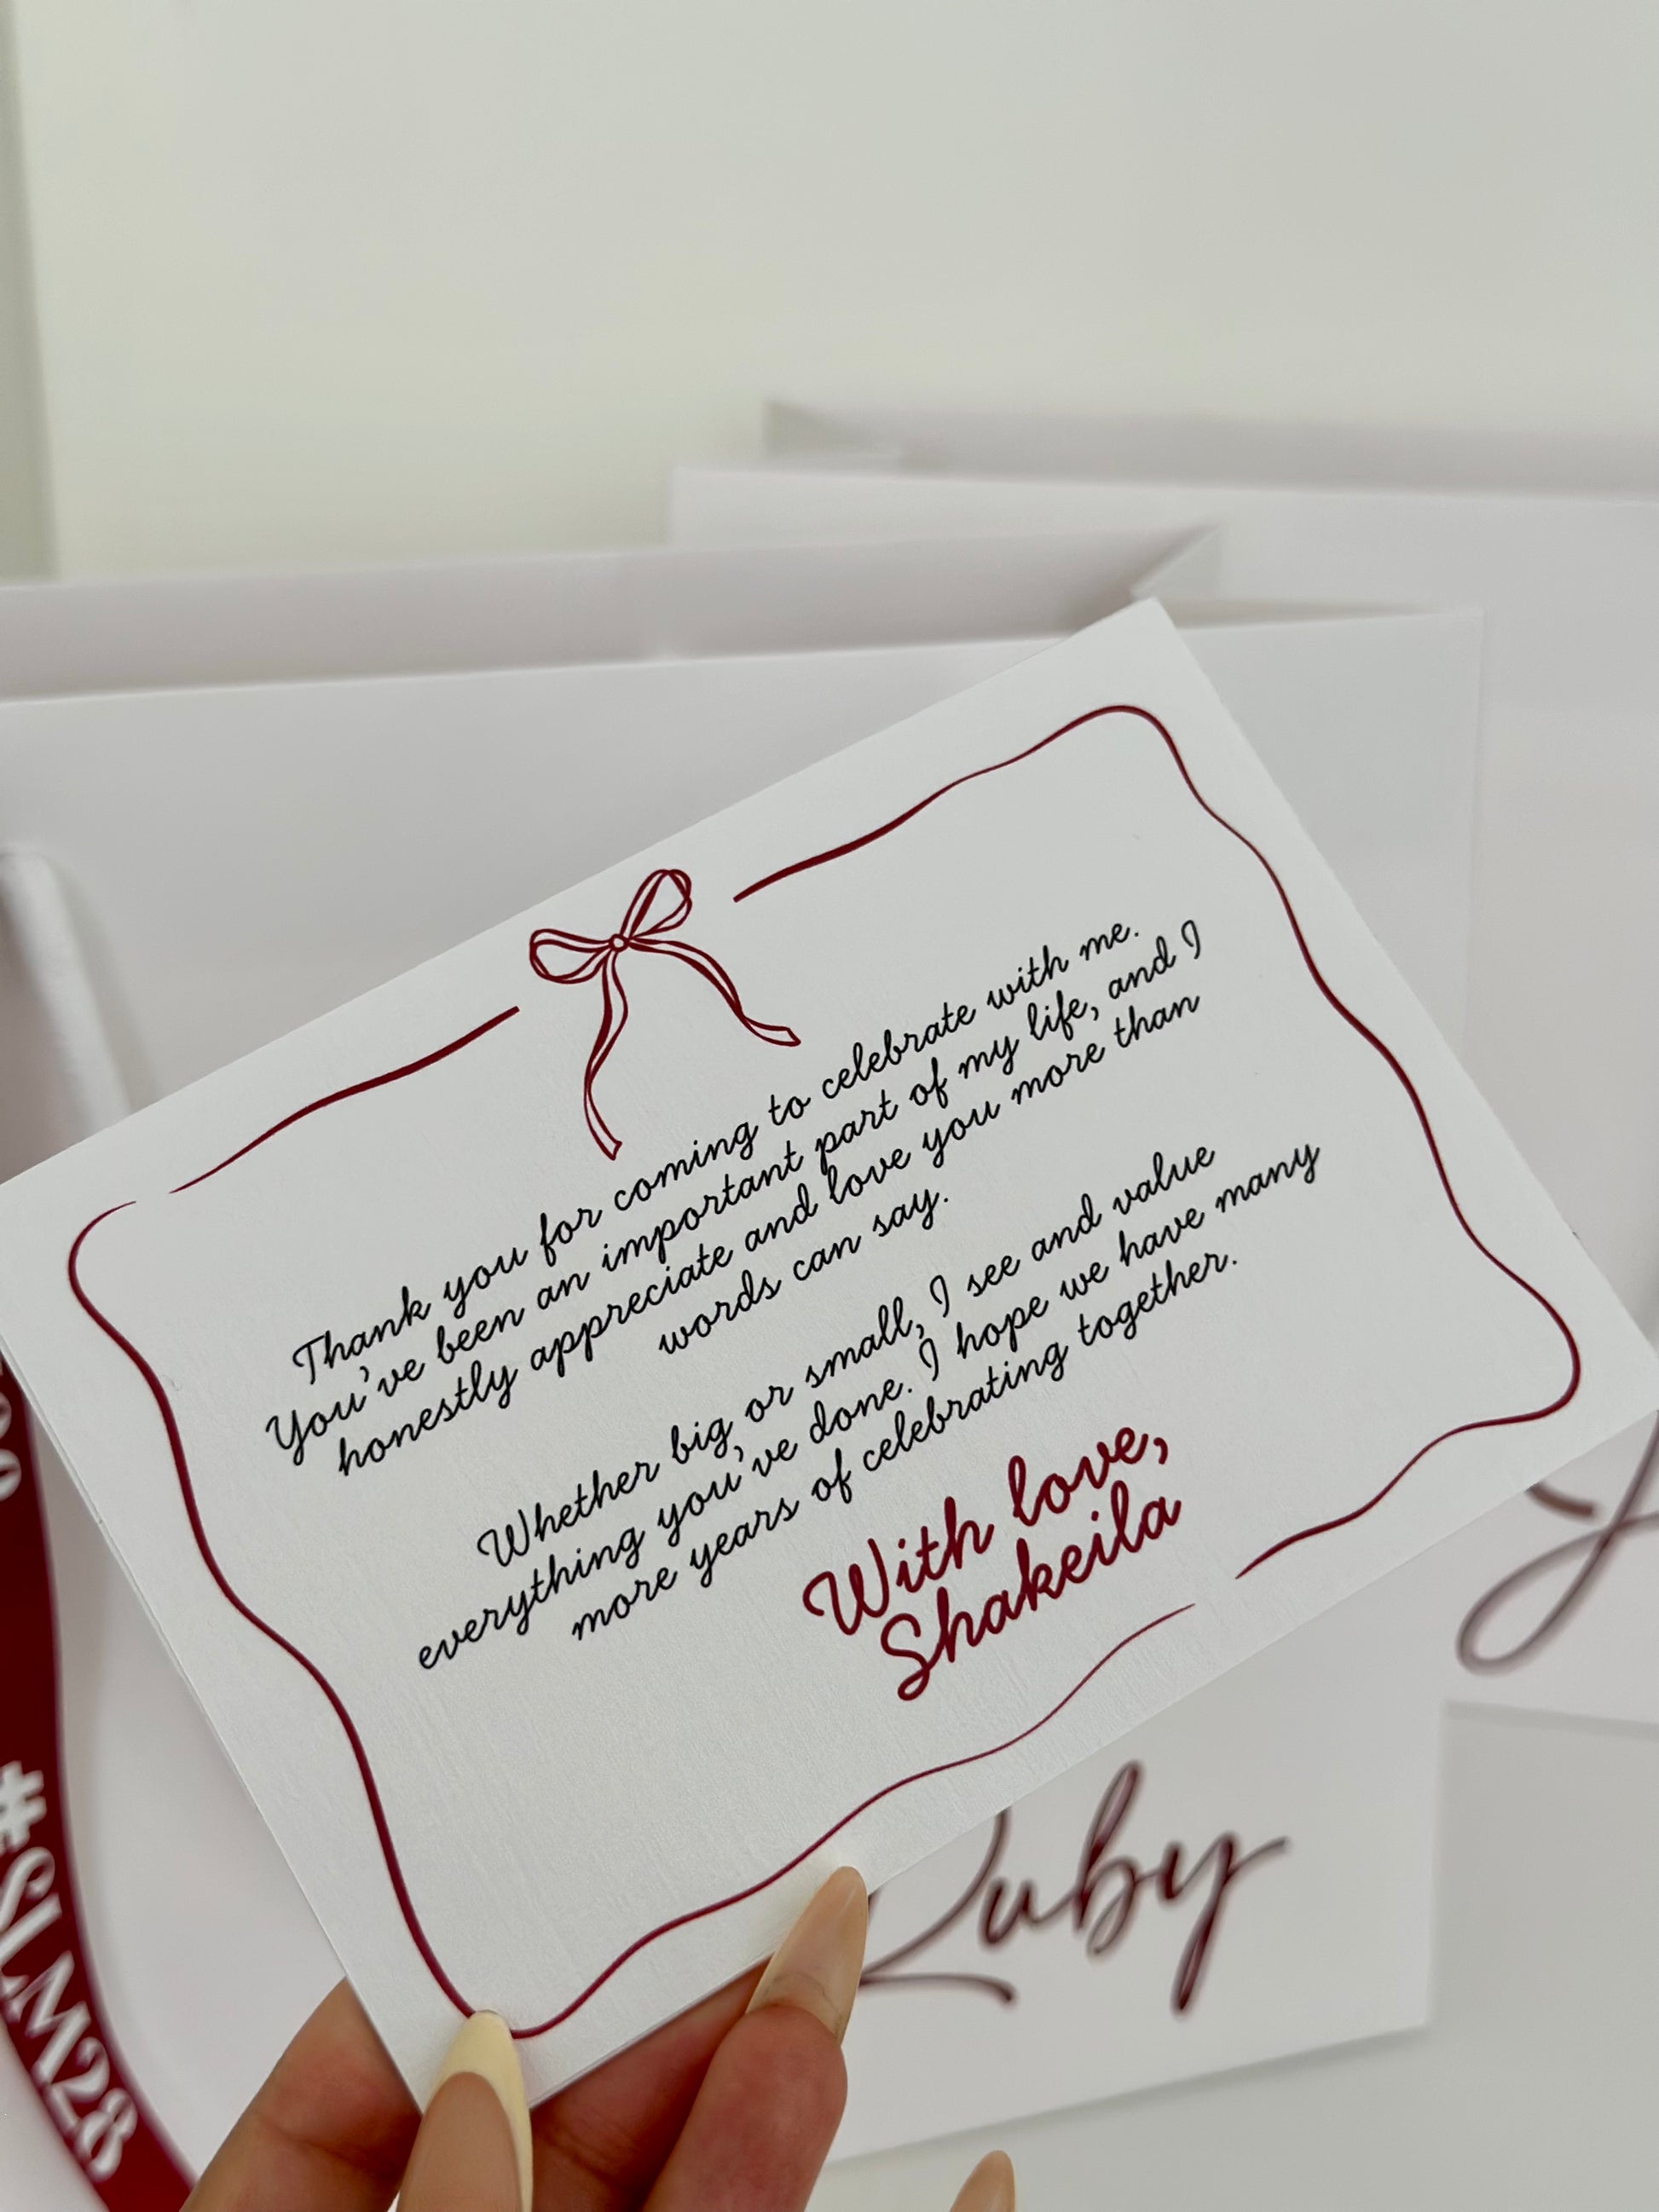 Thank you for coming to celebrate with me.
You've been an important part of my life, and I
honestly appreciate and love you more than
words can say.
Whether big, or small, I see and value
everything you've done. I hope we have many
more years of celebrating together.
With love,
Shakeila
Ruby
#SLM28